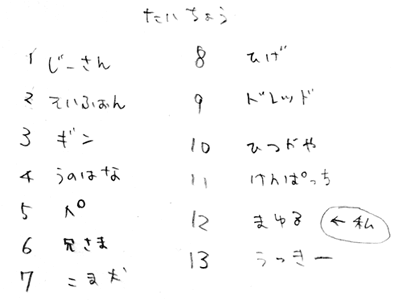 たいちょう
1 じーさん
2 そいふぉん
3 ギン
4 うのはな
5 ペ
6 兄さま
7 こま犬
8 ひげ
9 ドレッド
10 ひつがや
11 けんぱっち
12 まゆる ←私
13 うっきー